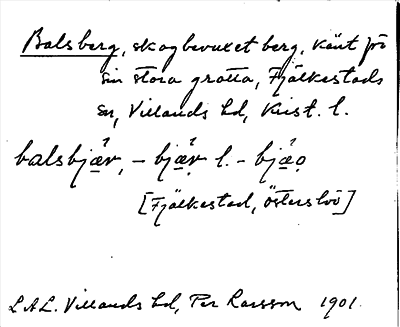 Balsberg, skogbevuxet berg, känt för
sin stora grotta, Fjälkestads
sn, Villands hd, Krist. l.
balsbjær, – bjær l. – bjæo
[Fjälkestad, Österslöv]
LAL. Villands hd, Per Larsson 1901.